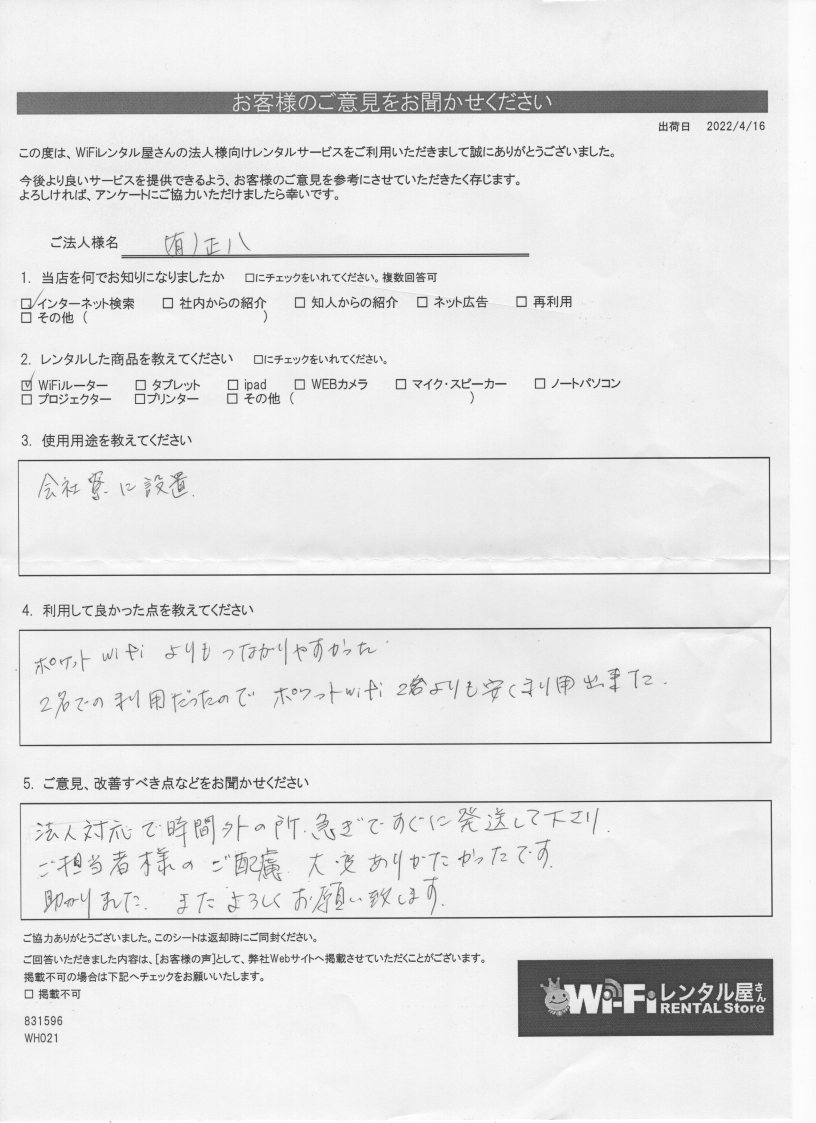 お客様のご意見をお聞かせください
出荷日 2022/4/16
この度は、WiFiレンタル屋さんの法人様向けレンタルサービスをご利用いただきまして誠にありがとうございました。
今後より良いサービスを提供できるよう、お客様のご意見を参考にさせていただきたく存じます。
よろしければ、アンケートにご協力いただけましたら幸いです。
ご法人様名 (有)正八
1. 当店を何でお知りになりましたか □にチェックをいれてください。複数回答可
☑インターネット検索 □ 社内からの紹介 □ 知人からの紹介 □ ネット広告 □ 再利用
□ その他 ( )
2. レンタルした商品を教えてください □にチェックをいれてください。
☑ WiFiルーター □ タブレット □ ipad □ WEBカメラ □ マイク・スピーカー □ ノートパソコン
□ プロジェクター □プリンター □ その他 ( )
3. 使用用途を教えてください
会社寮に設置.
4. 利用して良かった点を教えてください
ポケット wifi よりもつながりやすかった
2名での利用だったので ポケットwifi 2台よりも安く利用出来た.
5. ご意見、改善すべき点などをお聞かせください
法人対応で時間外の所.急ぎですぐに発送して下さり.
ご担当者様のご配慮.大変ありがたかったです.
助かりました. またよろしくお願い致します.
ご協力ありがとうございました。このシートは返却時にご同封ください。
ご回答いただきました内容は、[お客様の声]として、弊社Webサイトへ掲載させていただくことがございます。
掲載不可の場合は下記へチェックをお願いいたします。
□ 掲載不可
831596
WH021
Wi-Fiレンタル屋さん
RENTAL Store